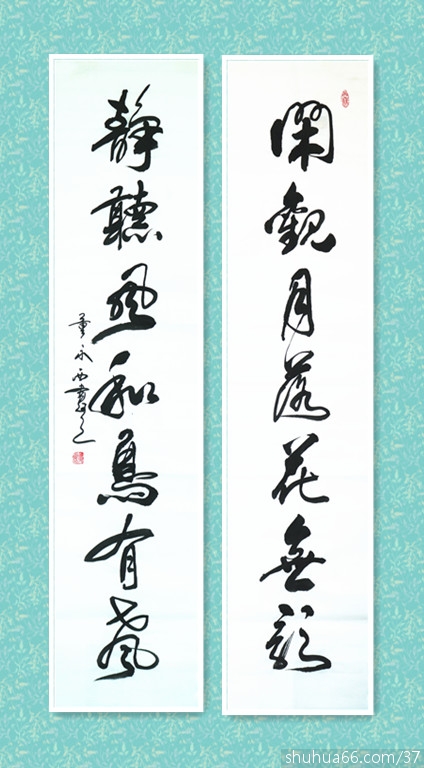 閑觀月落花無影
靜聽風和鳥有聲
董永西書
shuhua66.com/37